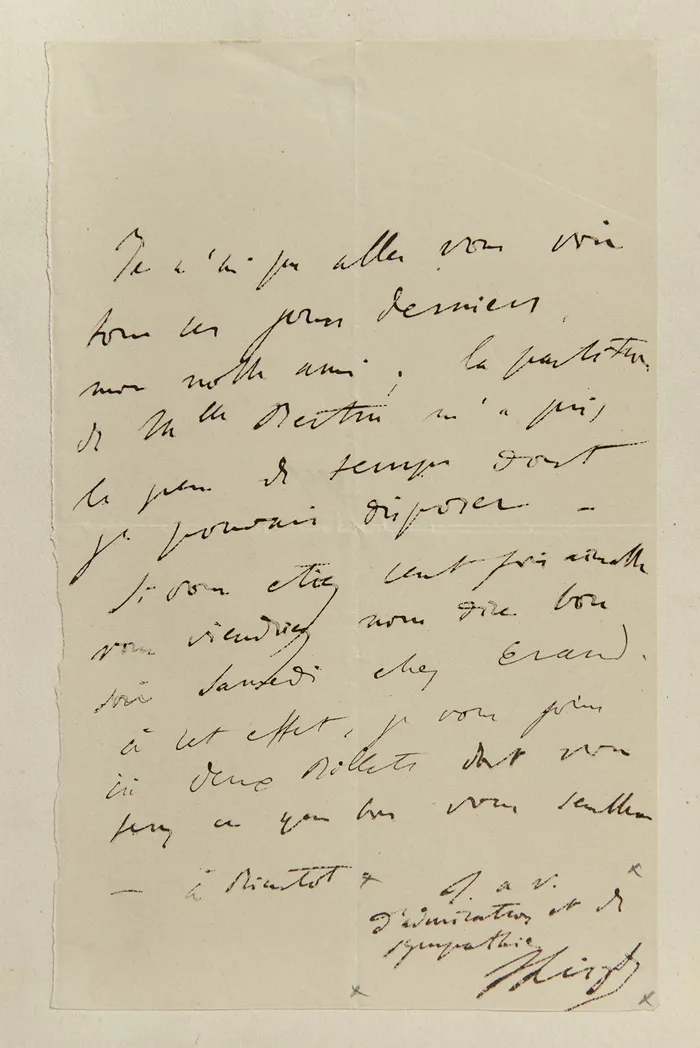 Je n'ai pu aller vous voir
tous ces jours derniers,
mon noble ami; la partition
de Mlle Bertin m'a pris
le peu de temps dont
je pouvais disposer –
Si vous étiez cent fois aimable
vous viendriez nous dire bon
soir Samedi chez Erard.
à cet effet, je vous joins
ici deux Billets dont vous
ferez ce que bon vous semblera
– à Bientot
T. a v.
d'admiration et de
sympathie
FLiszt